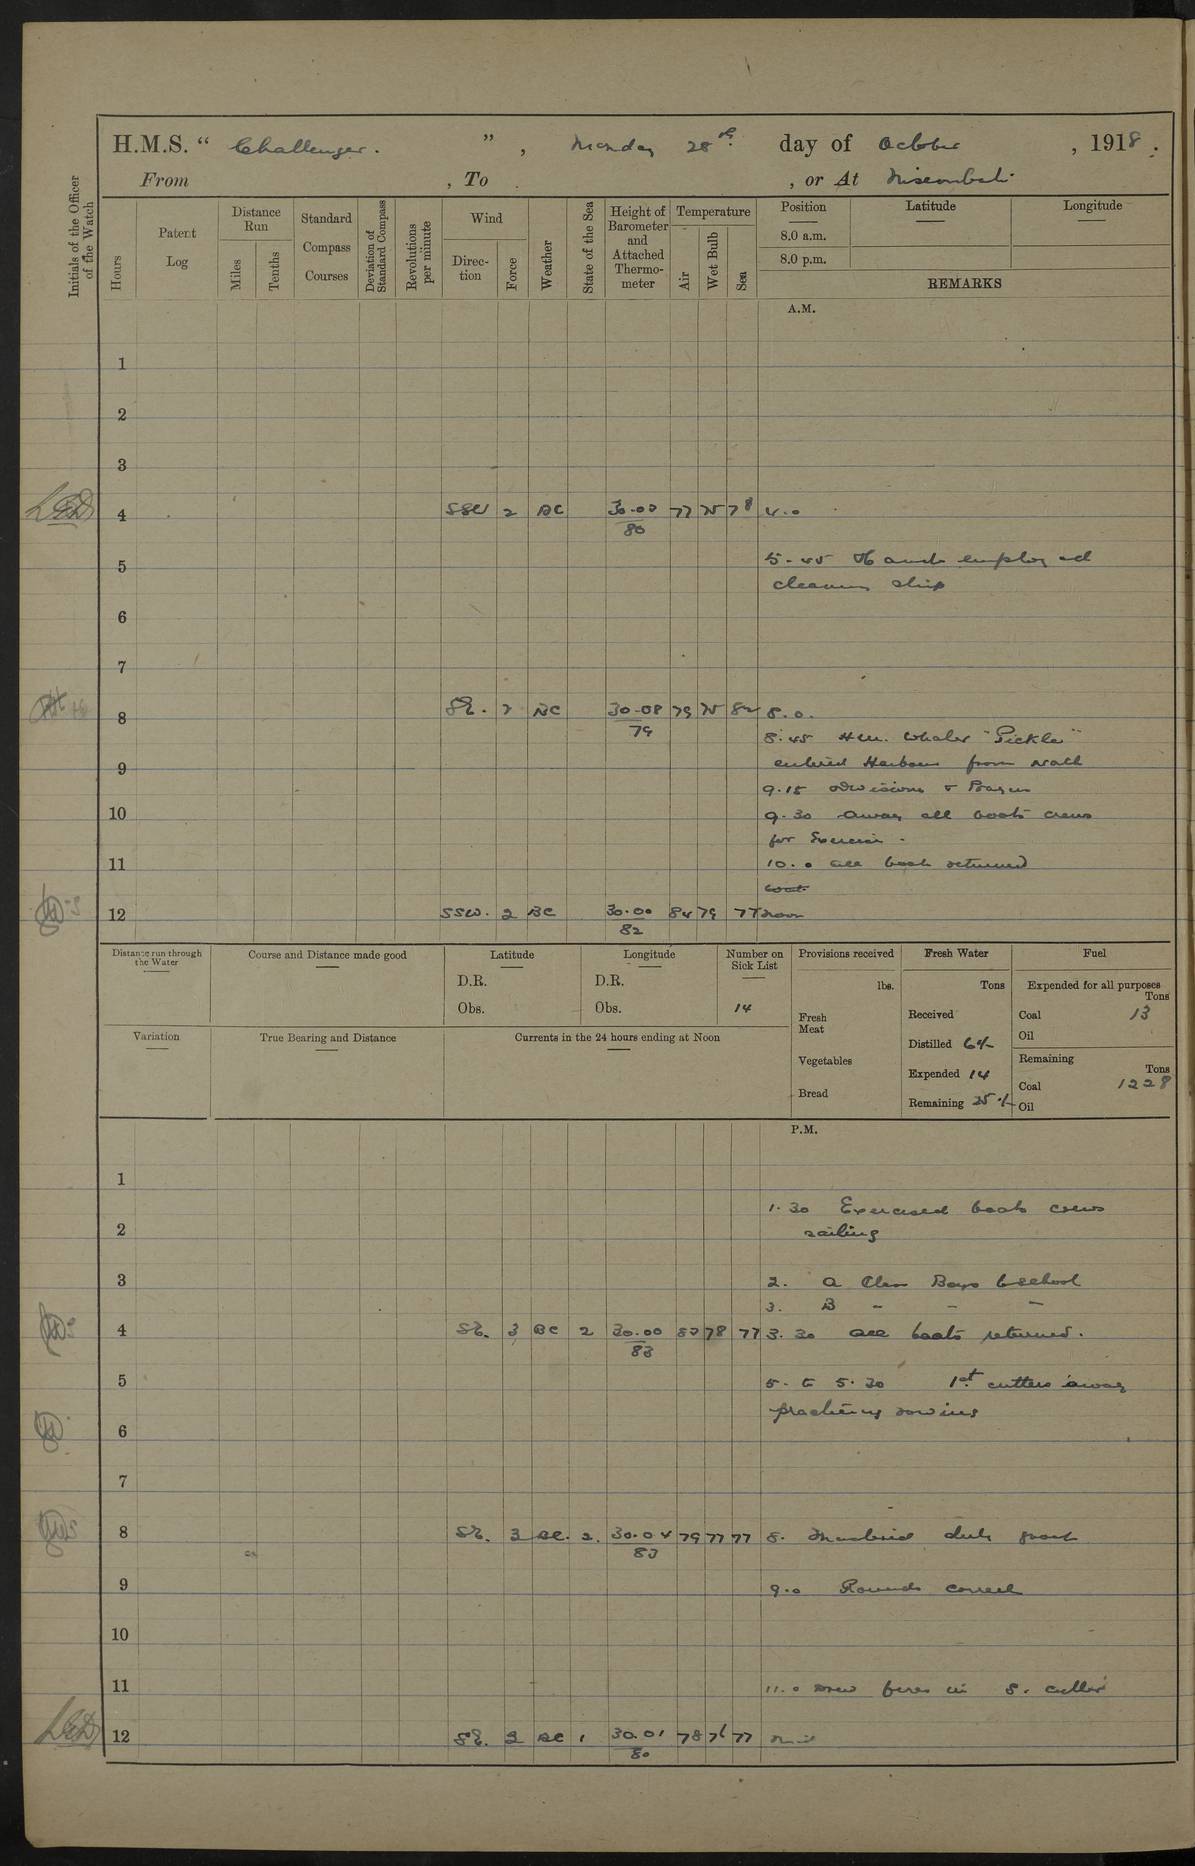 H.M.S. “ Challenger. ” , Monday 28th day of October , 1918.
From , To , or At
Initials of the Officer of the Watch
Hours
Patent Log
Distance Run
Miles
Tenths
Standard Compass Courses
Deviation of Standard Compass
Revolutions per minute
Wind
Direction
Force
Weather
State of the Sea
Height of Barometer and Attached Thermometer
Temperature
Air
Wet Bulb
Sea
Position Latitude Longitude
8.0 a.m.
8.0 p.m.
REMARKS
A.M.
1
2
3
4 SSW 2 BC 30.00 77 75 78 4.0
80
5.45 Hands employed
5
cleaning ship
6
7
8 SE. 2 BC 30.08 79 75 82 8.0.
79
8.45 H.M. Whaler "Pickle"
9 entered Harbour from
9.15 Divisions & Prayers
10 9.30 Away all boats crews
for Exercise.
11 10.0 all boats returned
12 SSW. 2 BC 30.00 84 79 77 Noon
82
Distance run through the Water
Course and Distance made good
Latitude
D.R.
Obs.
Longitude
D.R.
Obs.
Number on Sick List
14
Provisions received
lbs.
Fresh Meat
Vegetables
Bread
Fresh Water
Tons
Received
Distilled
Expended 14
Remaining
Fuel
Expended for all purposes
Tons
Coal 13
Oil
Remaining
Tons
Coal 1228
Oil
Variation
True Bearing and Distance
Currents in the 24 hours ending at Noon
P.M.
1
1.30 Exercised boats crews
2 sailing
3 2. A Class Boys to School
3. B " " "
4 SE. 3 BC 2 30.00 82 78 77 3.30 all boats returned.
83
5 5. to 5.30 1st cutters away
practising rowing
6
7
8 SE. 3 BC. 2. 30.04 79 77 77 8. Mustered duty part
83
9 9.0 Rounds correct
10
11 11.0 Drew fires in S. cutter
12 SE. 2 BC 1 30.01 78 76 77
80